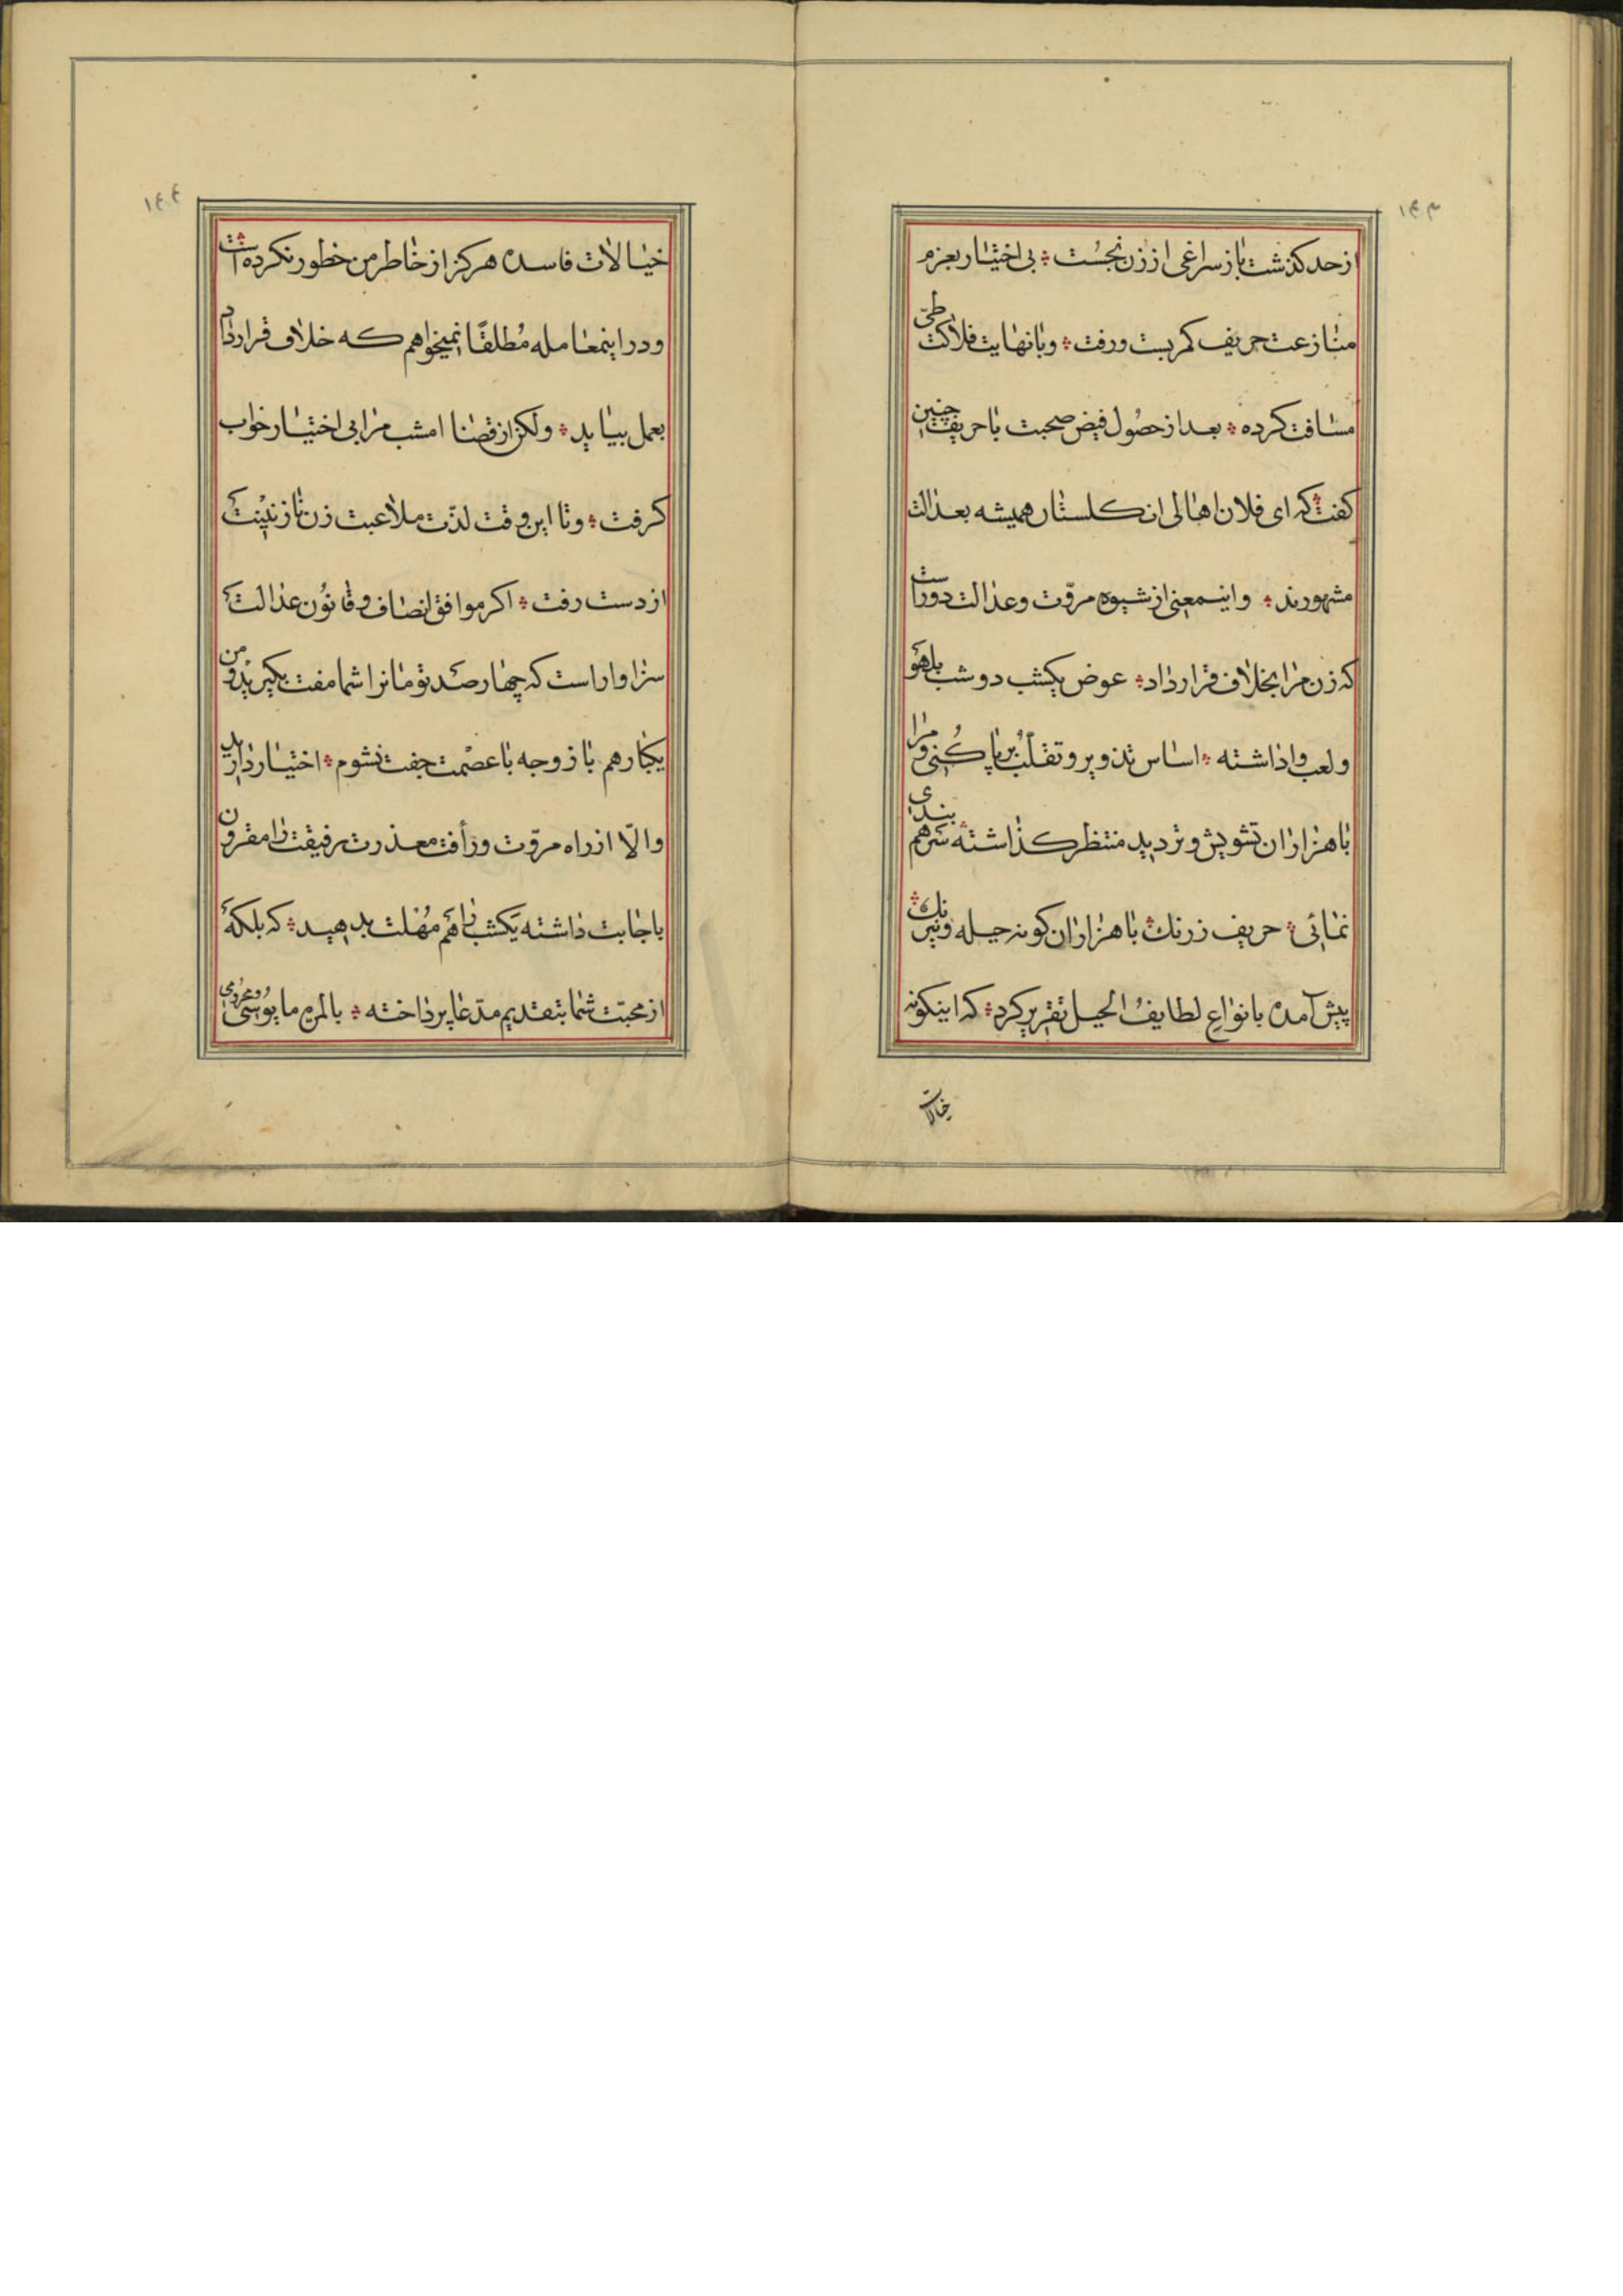 ١٤٣
از حد کذشت باز سراغی از زن نجُست ؞ بی اختیار بعزم
منازعت حریف کمر بست و رفت ؞ و با نهایت فلاکت طیّ
مسافت کرده ؞ بعد از حصُول فیض صحبت با حریف چنین
کفت ؞ که ای فلان اهالی ان کلستان همیشه بعدالت
مشهورند ؞ و اینمعنی از شیوه مروّت و عدالت دور است
که زن مرا بخلاف قرارداد ؞ عوض یکشب دو شب بلهو
و لعب واداشته ؞ اساس تذویر و تقلّب برپا کُنی و مرا
با هزاران تشویش و تردید منتظر کذاشته ؞ سرهم بندی
نمائی ؞ حریف زرنك ؞ با هزاران کونه حیله و نیرنك ؞
پیش آمده با نواع لطایفُ الحیل تقریر کرد ؞ که اینکونه
خیالات
١٤٤
خیالات فاسده هرکز از خاطر من خطور نکرده است ؞
و در اینمعامله مُطلقًا نمیخواهم که خلاف قرارداد
بعمل بیاید ؞ ولکن از قضا امشب مرا بی اختیار خواب
کرفت ؞ و تا این وقت لذّت ملاعبت زن نازنینت
از دست رفت ؞ اکر موافق انصاف و قانُون عدالت
سزاوار است که چهارصد تومانرا شما مفت بکیرید و من
یکبار هم با زوجه با عصْمت جفت نشوم ؞ اختیار دارید
و الّا از راه مروّت و رأفت معذرت رفیقت را مقرون
باجابت داشته یکشب را هم مُهْلت بدهید ؞ که بلکه
از محبّت شما بتقدیم مدّعا پرداخته ؞ بالمره مایُوسی و محرُومی